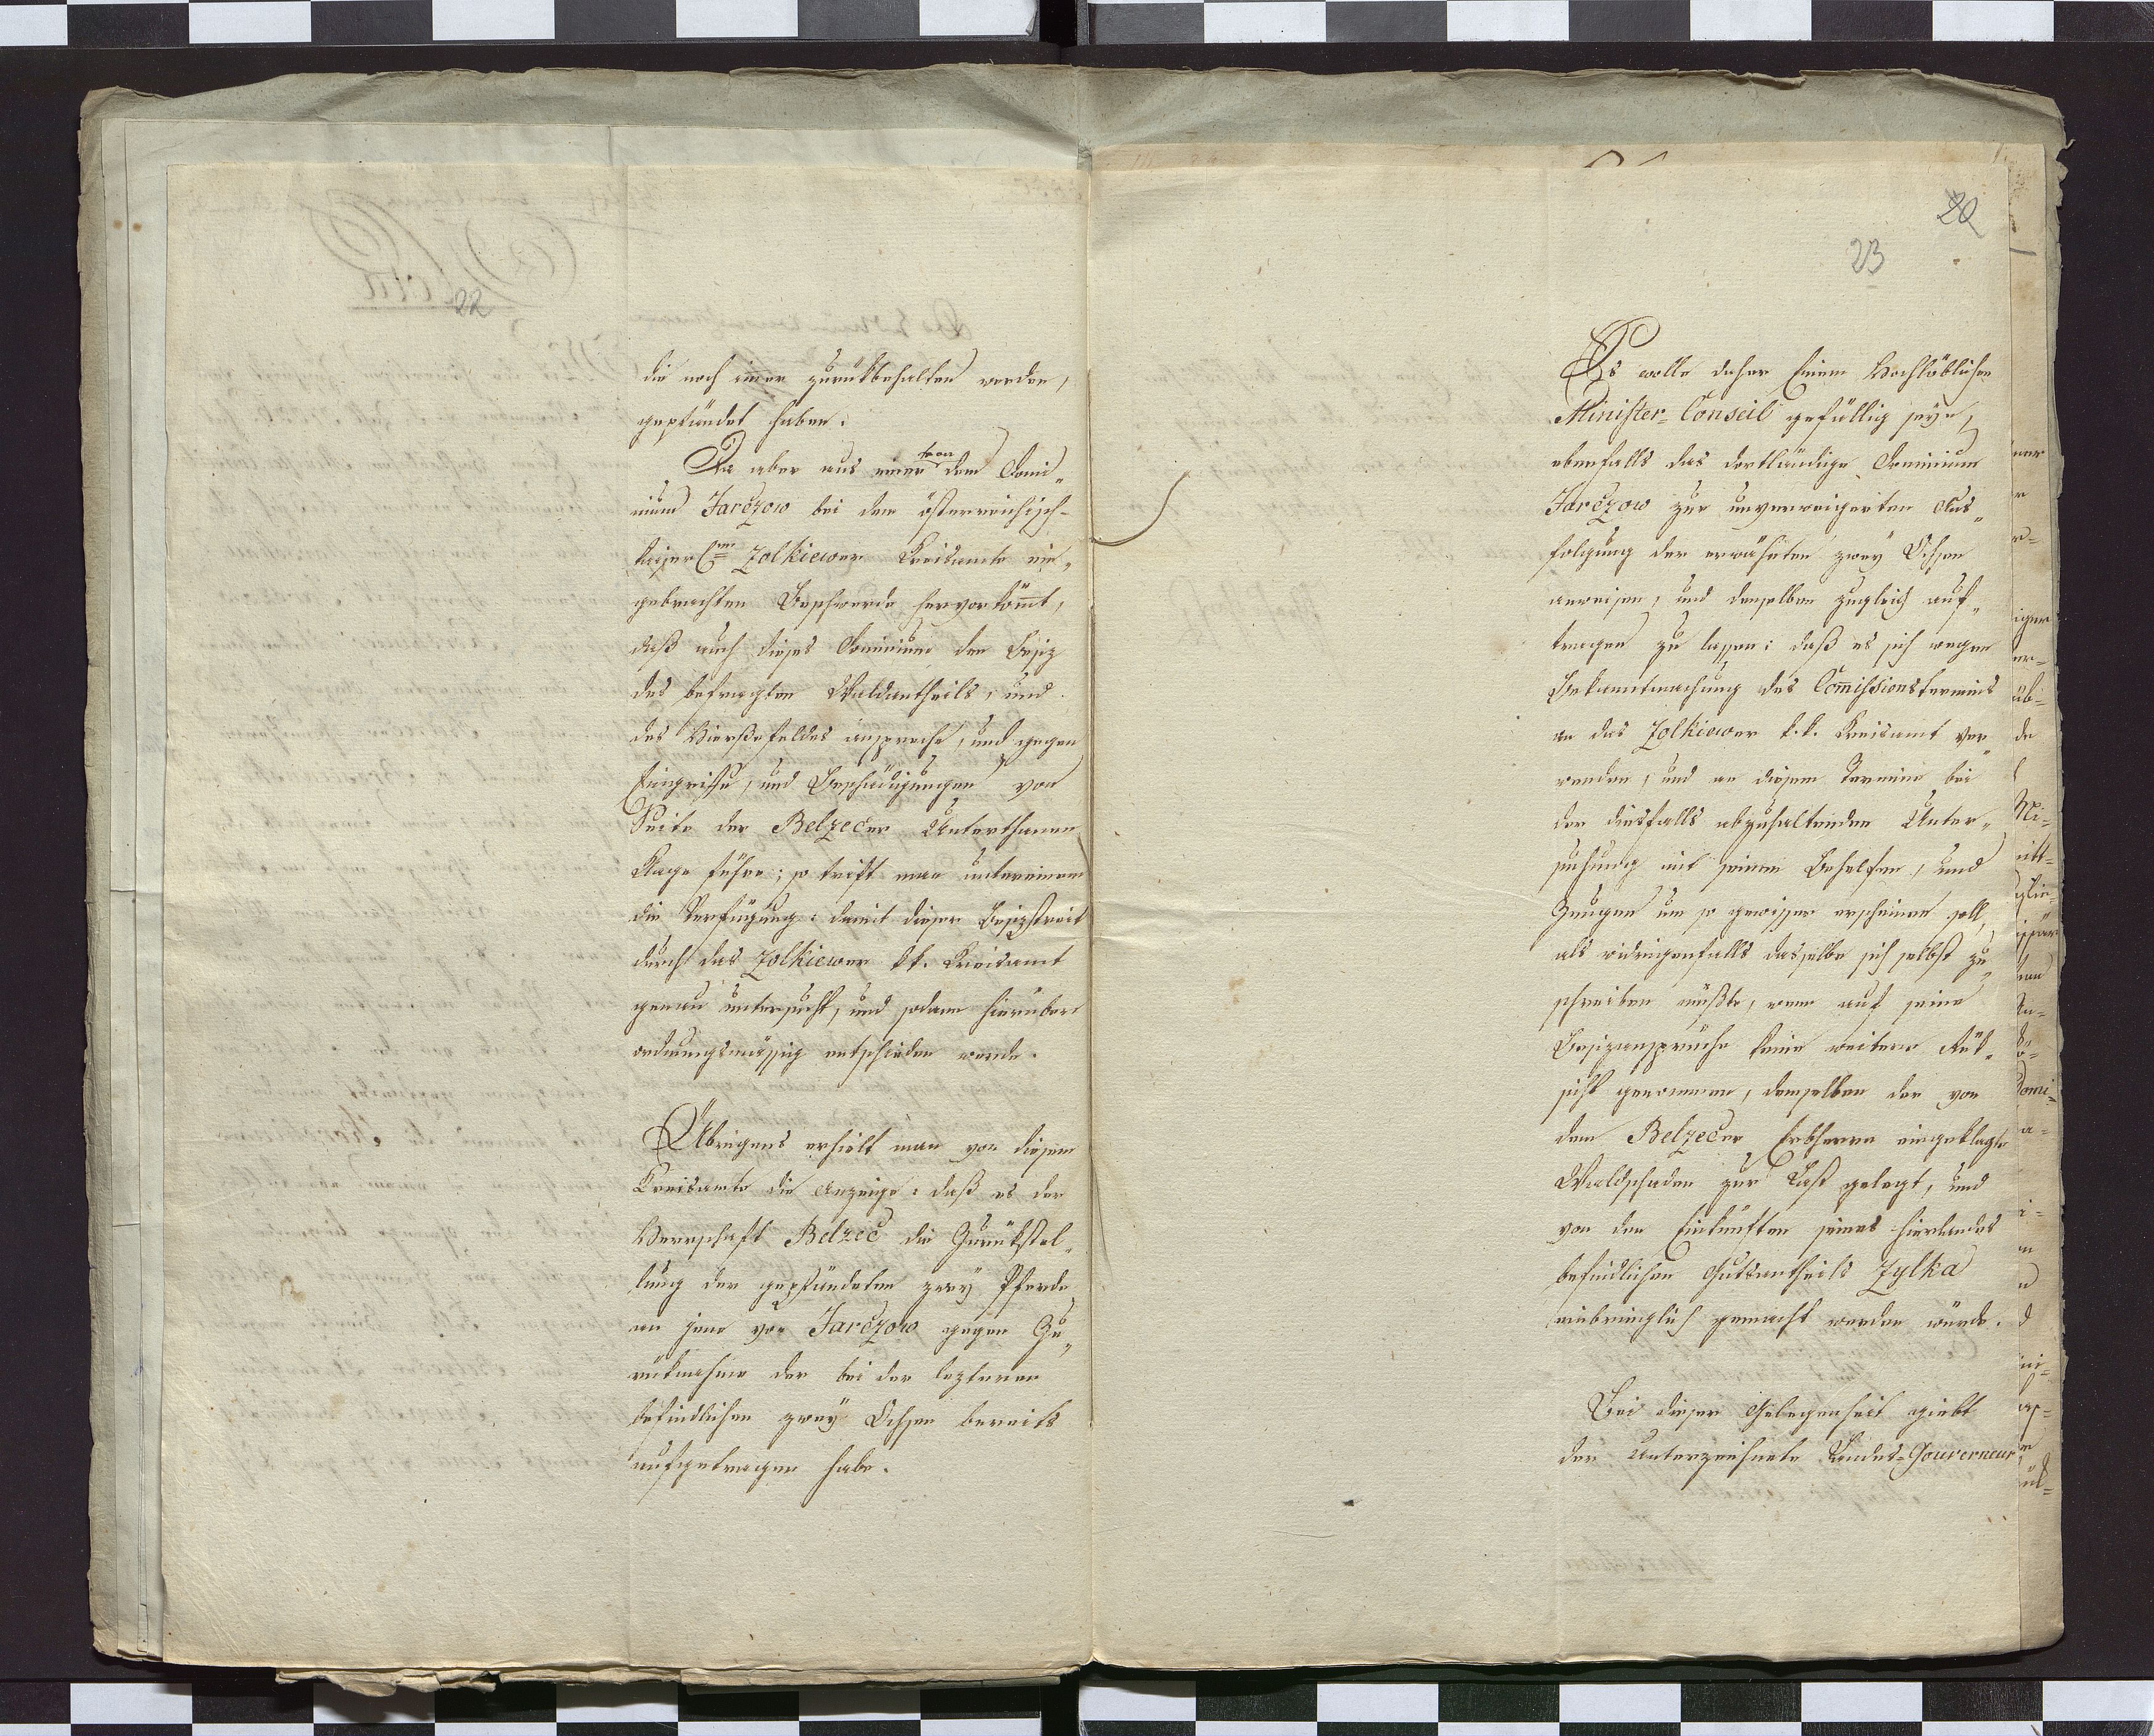 22
die noch im̅er zurükbehalten werden,
gepfändet haben.
Da aber aus einer von dem Domi„
nium Jarczow bei dem österreichisch-
kaiserl Zolkiewer Kreisamte ein„
gebrachten Beschwerde hervorkom̅t,
daß auch dieses Dominium den Besiz
des befragten Waldantheils, und
des anspreche, und gegen
Eingriffe, und Beschädigungen von
Seite der Belzecer Unterthanen
Klage führe; so trift man untereinem
die Verfügung: damit dieser Besizstreit
durch das Zolkiewer kk. Kreisamt
genau untersucht, und sodann hierüber
ordnungsmässig entschieden werde.
Übrigens erhielt man von diesem
Kreisamte die Anzeige: daß es der
Herrschaft Belzec die Zurükstel„
lung der gepfändeten zwey Pferde
an jene von Jarczow gegen Zu„
rüknahme der bei der lezteren
befindlichen zwey Ochsen bereits
aufgetragen habe.
20
23
Es wolle daher Einem Hochlöblichen
Minister-Conseil gefällig seyn,
ebenfalls das dortländige Dominium
Jarczow zur unverweigerten Aus„
folgung der erwähnten zwey Ochsen
anweisen, und demselben zugleich auf„
tragen zu lassen: daß es sich wegen
Bekanntmachung des Com̅issionstermins
an das Zolkiewer k.k. Kreisamt ver„
wenden, und an diesem Termine bei
der diesfalls abzuhaltenden Unter„
suchung mit seinen Behelfen, und
Zeugen um so gewisser erscheinen soll,
als widrigenfalls dasselbe sich selbst zu„
schreiben müßte, wenn auf seine
Besizansprüche keine weitere Rük„
sicht genommen, demselben der von
dem Belzecer Erbherrn eingeklagte
Waldschaden zur Last gelegt, und
von den Einkünften seines hierlandes
befindlichen Gutsantheils Zylka
einbringlich gemacht werden würde.
Bei dieser Gelegenheit giebt
der Unterzeichnete Landes-Gouverneur